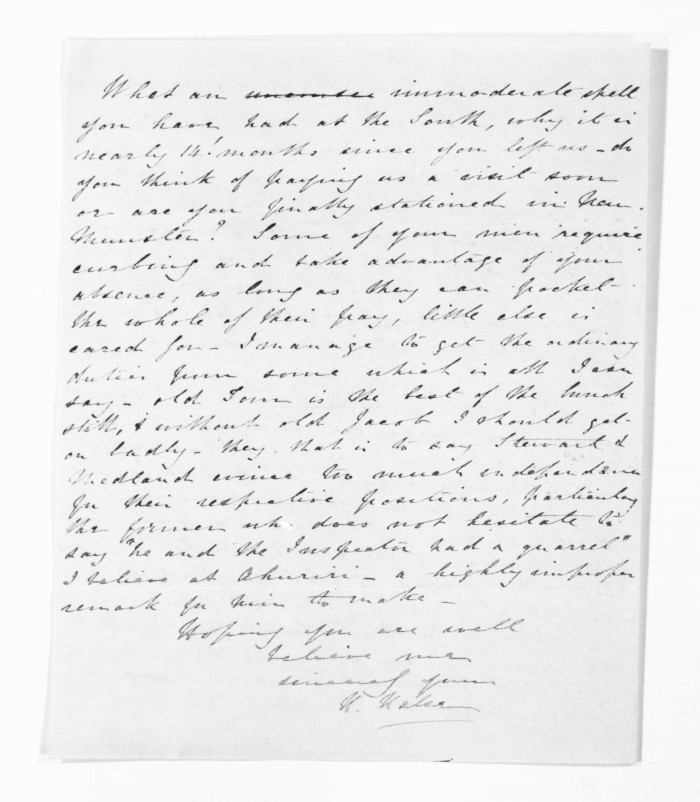 What an immoderate spell
you have had at the South, why it is
nearly 14 months since you left us - do
you think of paying us a visit soon
or are you finally stationed in New
Munster? Some of your men require
curbing and take advantage of your
absence, as long as they can pocket
the whole of their pay, little else is
cared for - I manage to get the ordinary
duties from some which is all I can
say - old Tom is the best of the bunch
still, & without old Jacob I should get
on badly - they, that is to say Stewart &
Medland evince too much independance
for their respective positions, particularly
the former who does not hesitate to
say "he and the Inspector had a quarrel"
I believe at Ahuriri - a highly improper
remark for him to make -
Hoping you are well
believe me
sincerely yours
H. Halse